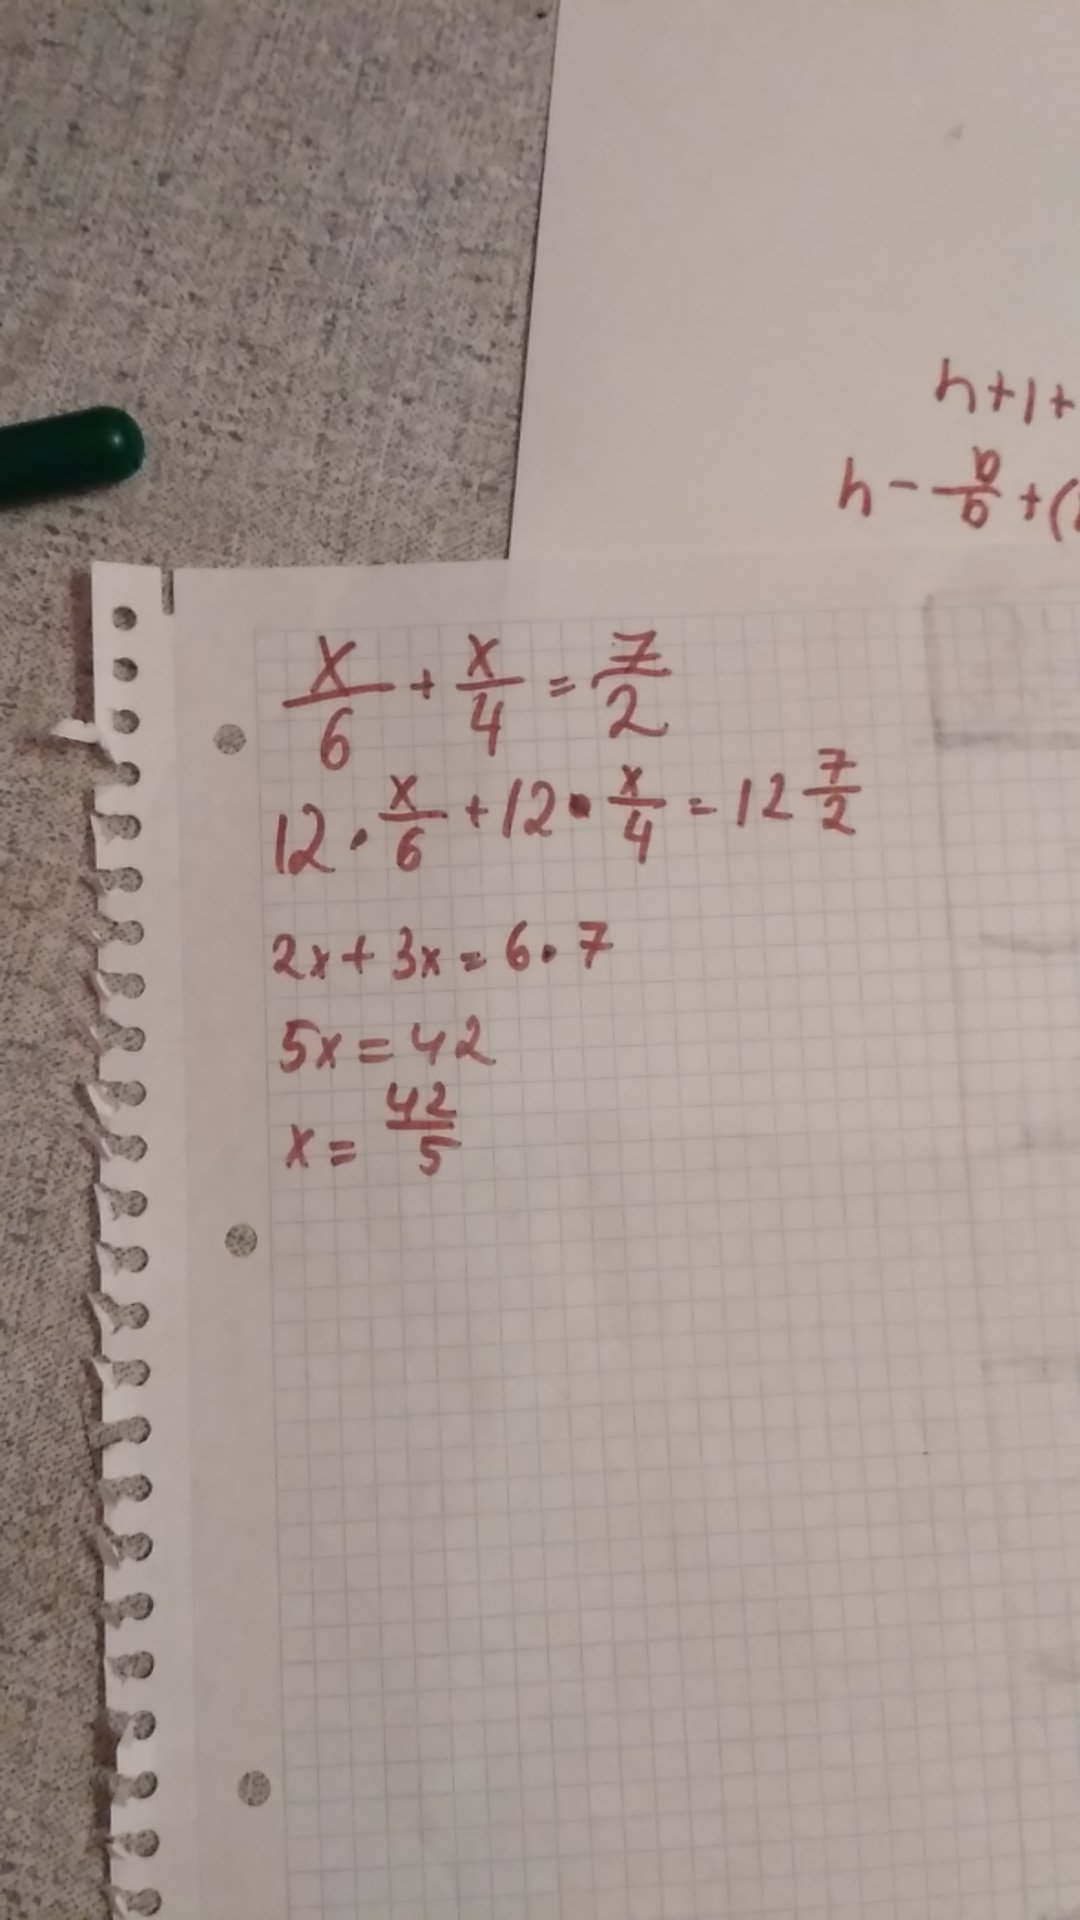 h+1+
h - b/a + (
x/6 + x/4 = 7/2
12 · x/6 + 12 · x/4 = 12 7/2
2x + 3x = 6 · 7
5x = 42
x = 42/5